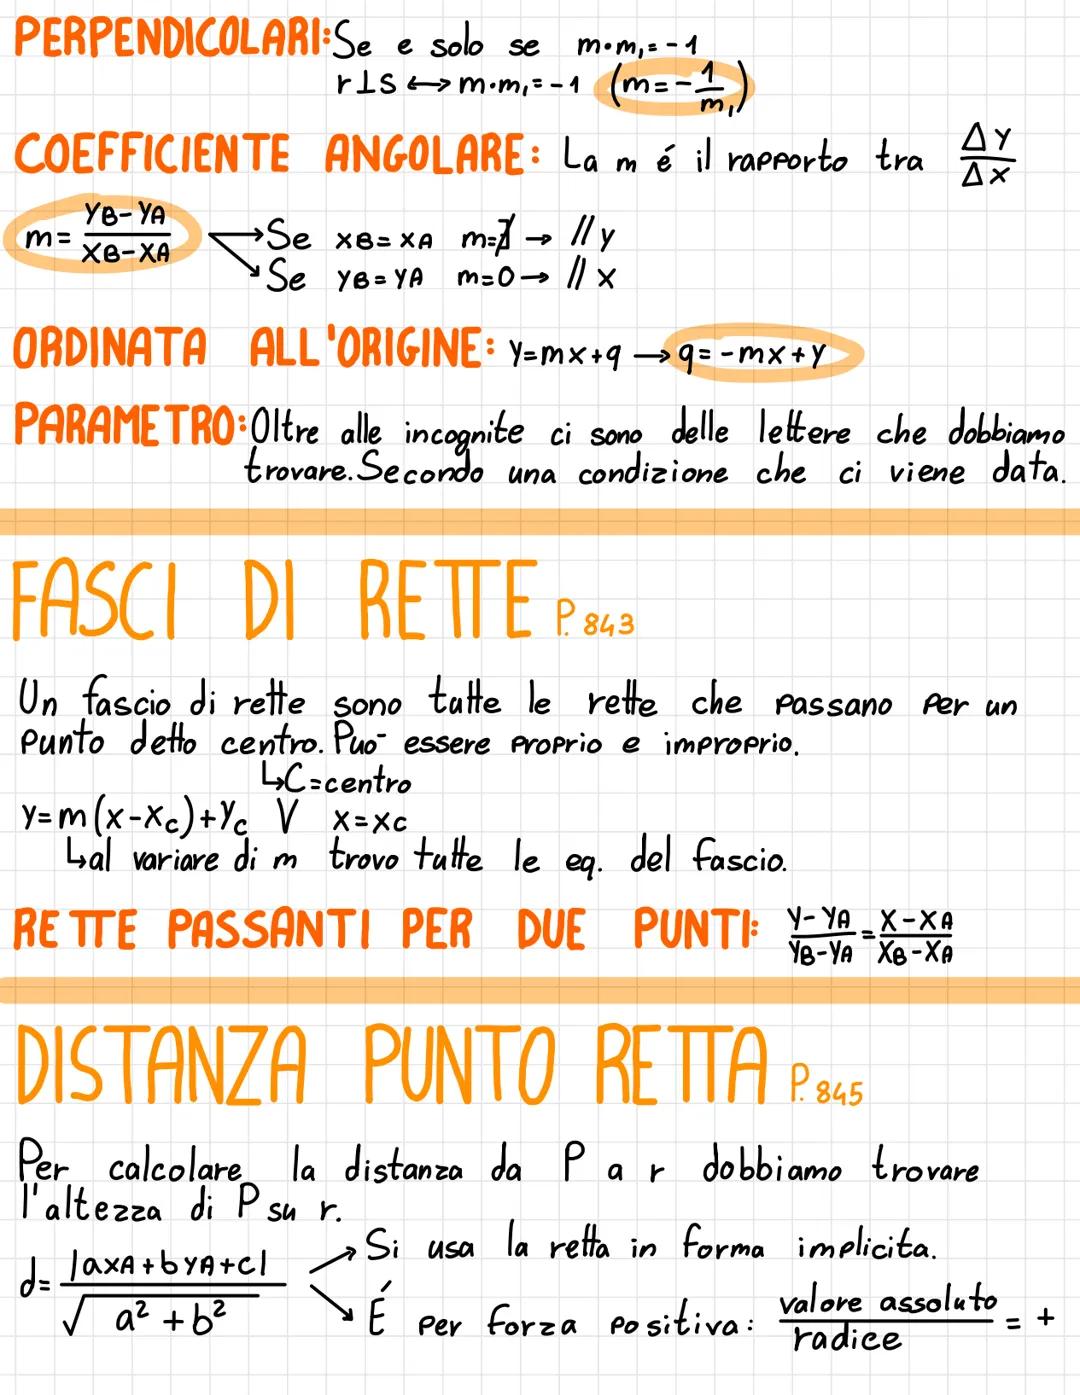 PERPENDICOLARI: Se e solo se m·m₁=-1
r⊥s ⟷ m·m₁=-1 (m=-1/m₁)
COEFFICIENTE ANGOLARE: La m é il rapporto tra ΔY/ΔX
m= YB-YA/XB-XA → Se XB=XA m=∄ → // y
→ Se YB=YA m=0 → // x
ORDINATA ALL'ORIGINE: Y=mx+q → q=-mx+y
PARAMETRO: Oltre alle incognite ci sono delle lettere che dobbiamo
trovare. Secondo una condizione che ci viene data.
FASCI DI RETTE P. 843
Un fascio di rette sono tutte le rette che passano per un
punto detto centro. Puo- essere proprio e improprio.
↳C=centro
y=m(x-xc)+yc V x=xc
↳al variare di m trovo tutte le eq. del fascio.
RETTE PASSANTI PER DUE PUNTI: Y-YA/YB-YA = X-XA/XB-XA
DISTANZA PUNTO RETTA P. 845
Per calcolare la distanza da P a r dobbiamo trovare
l'altezza di P su r.
d= |axA+byA+c|/√a²+b² → Si usa la retta in forma implicita.
→ É per forza positiva: valore assoluto/radice = +